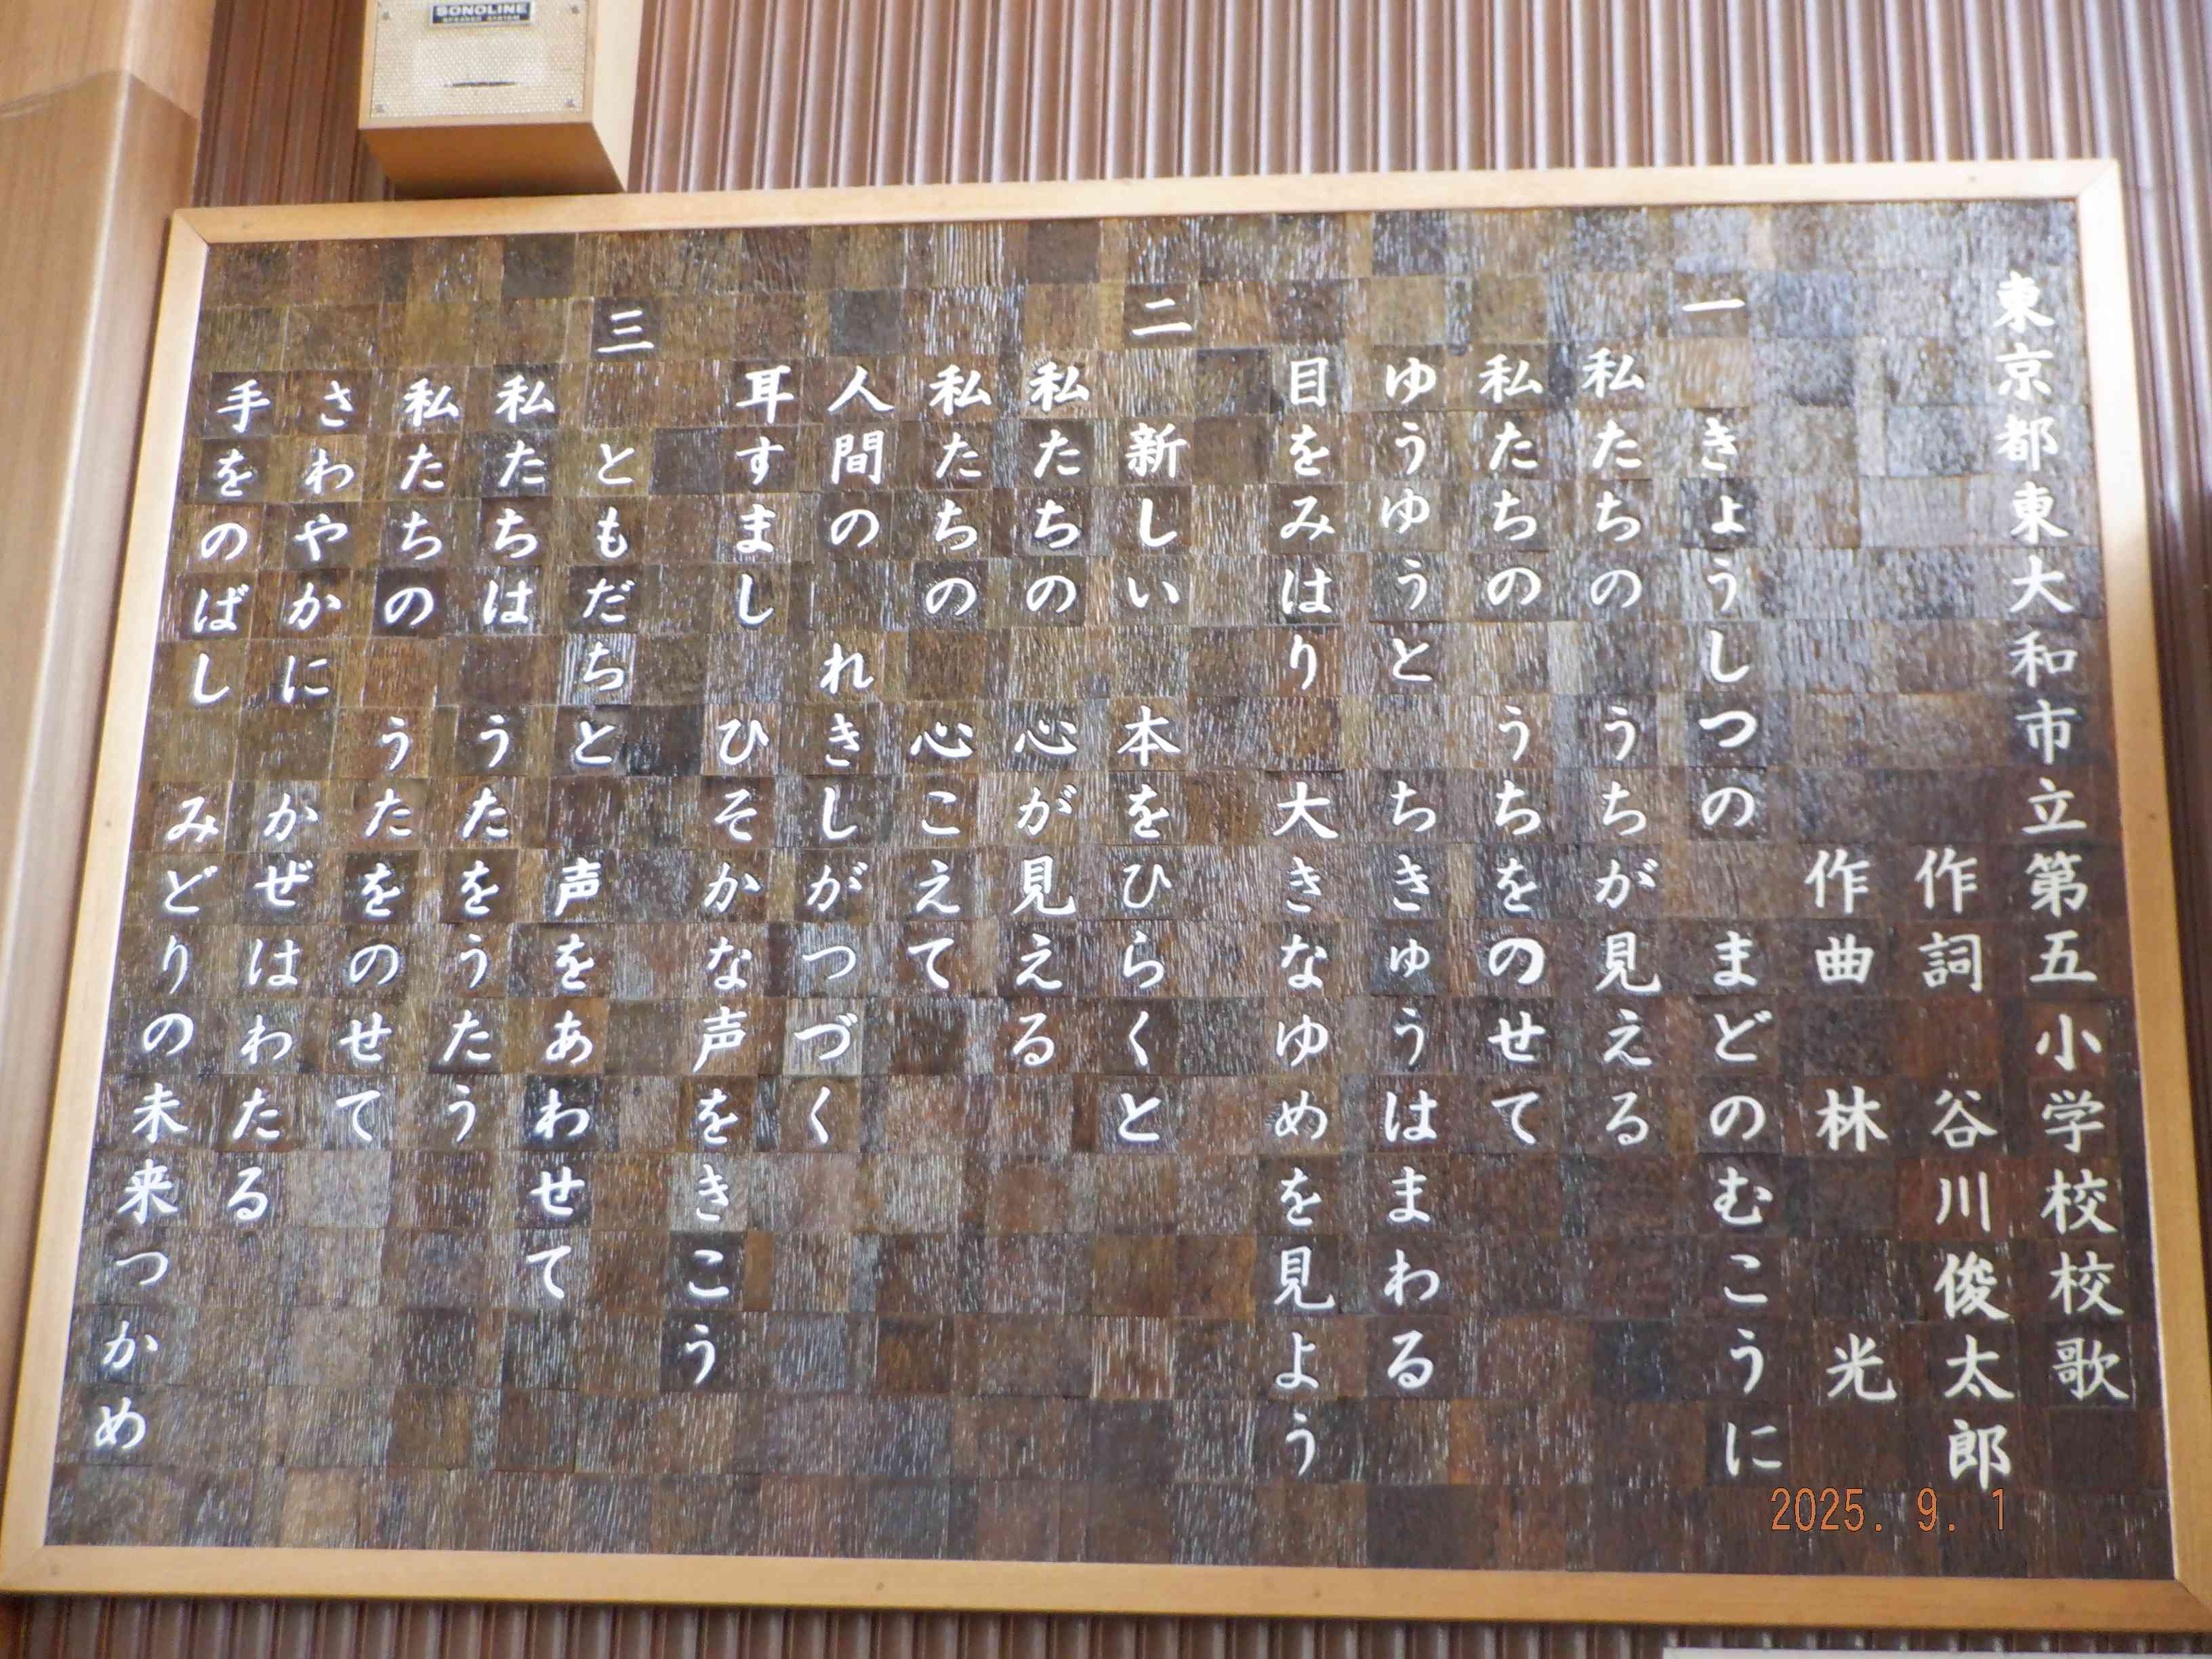 SONOLINE
SPEAKER SYSTEM
東京都東大和市立第五小学校校歌
作詞 谷川俊太郎
作曲 林 光
一
きょうしつの まどのむこうに
私たちの うちが見える
私たちの うちをのせて
ゆうゆうと ちきゅうはまわる
目をみはり 大きなゆめを見よう
二
新しい 本をひらくと
私たちの 心が見える
私たちの 心こえて
人間の れきしがつづく
耳すまし ひそかな声をきこう
三
ともだちと 声をあわせて
私たちは うたをうたう
私たちの うたをのせて
さわやかに かぜはわたる
手をのばし みどりの未来つかめ
2025. 9. 1